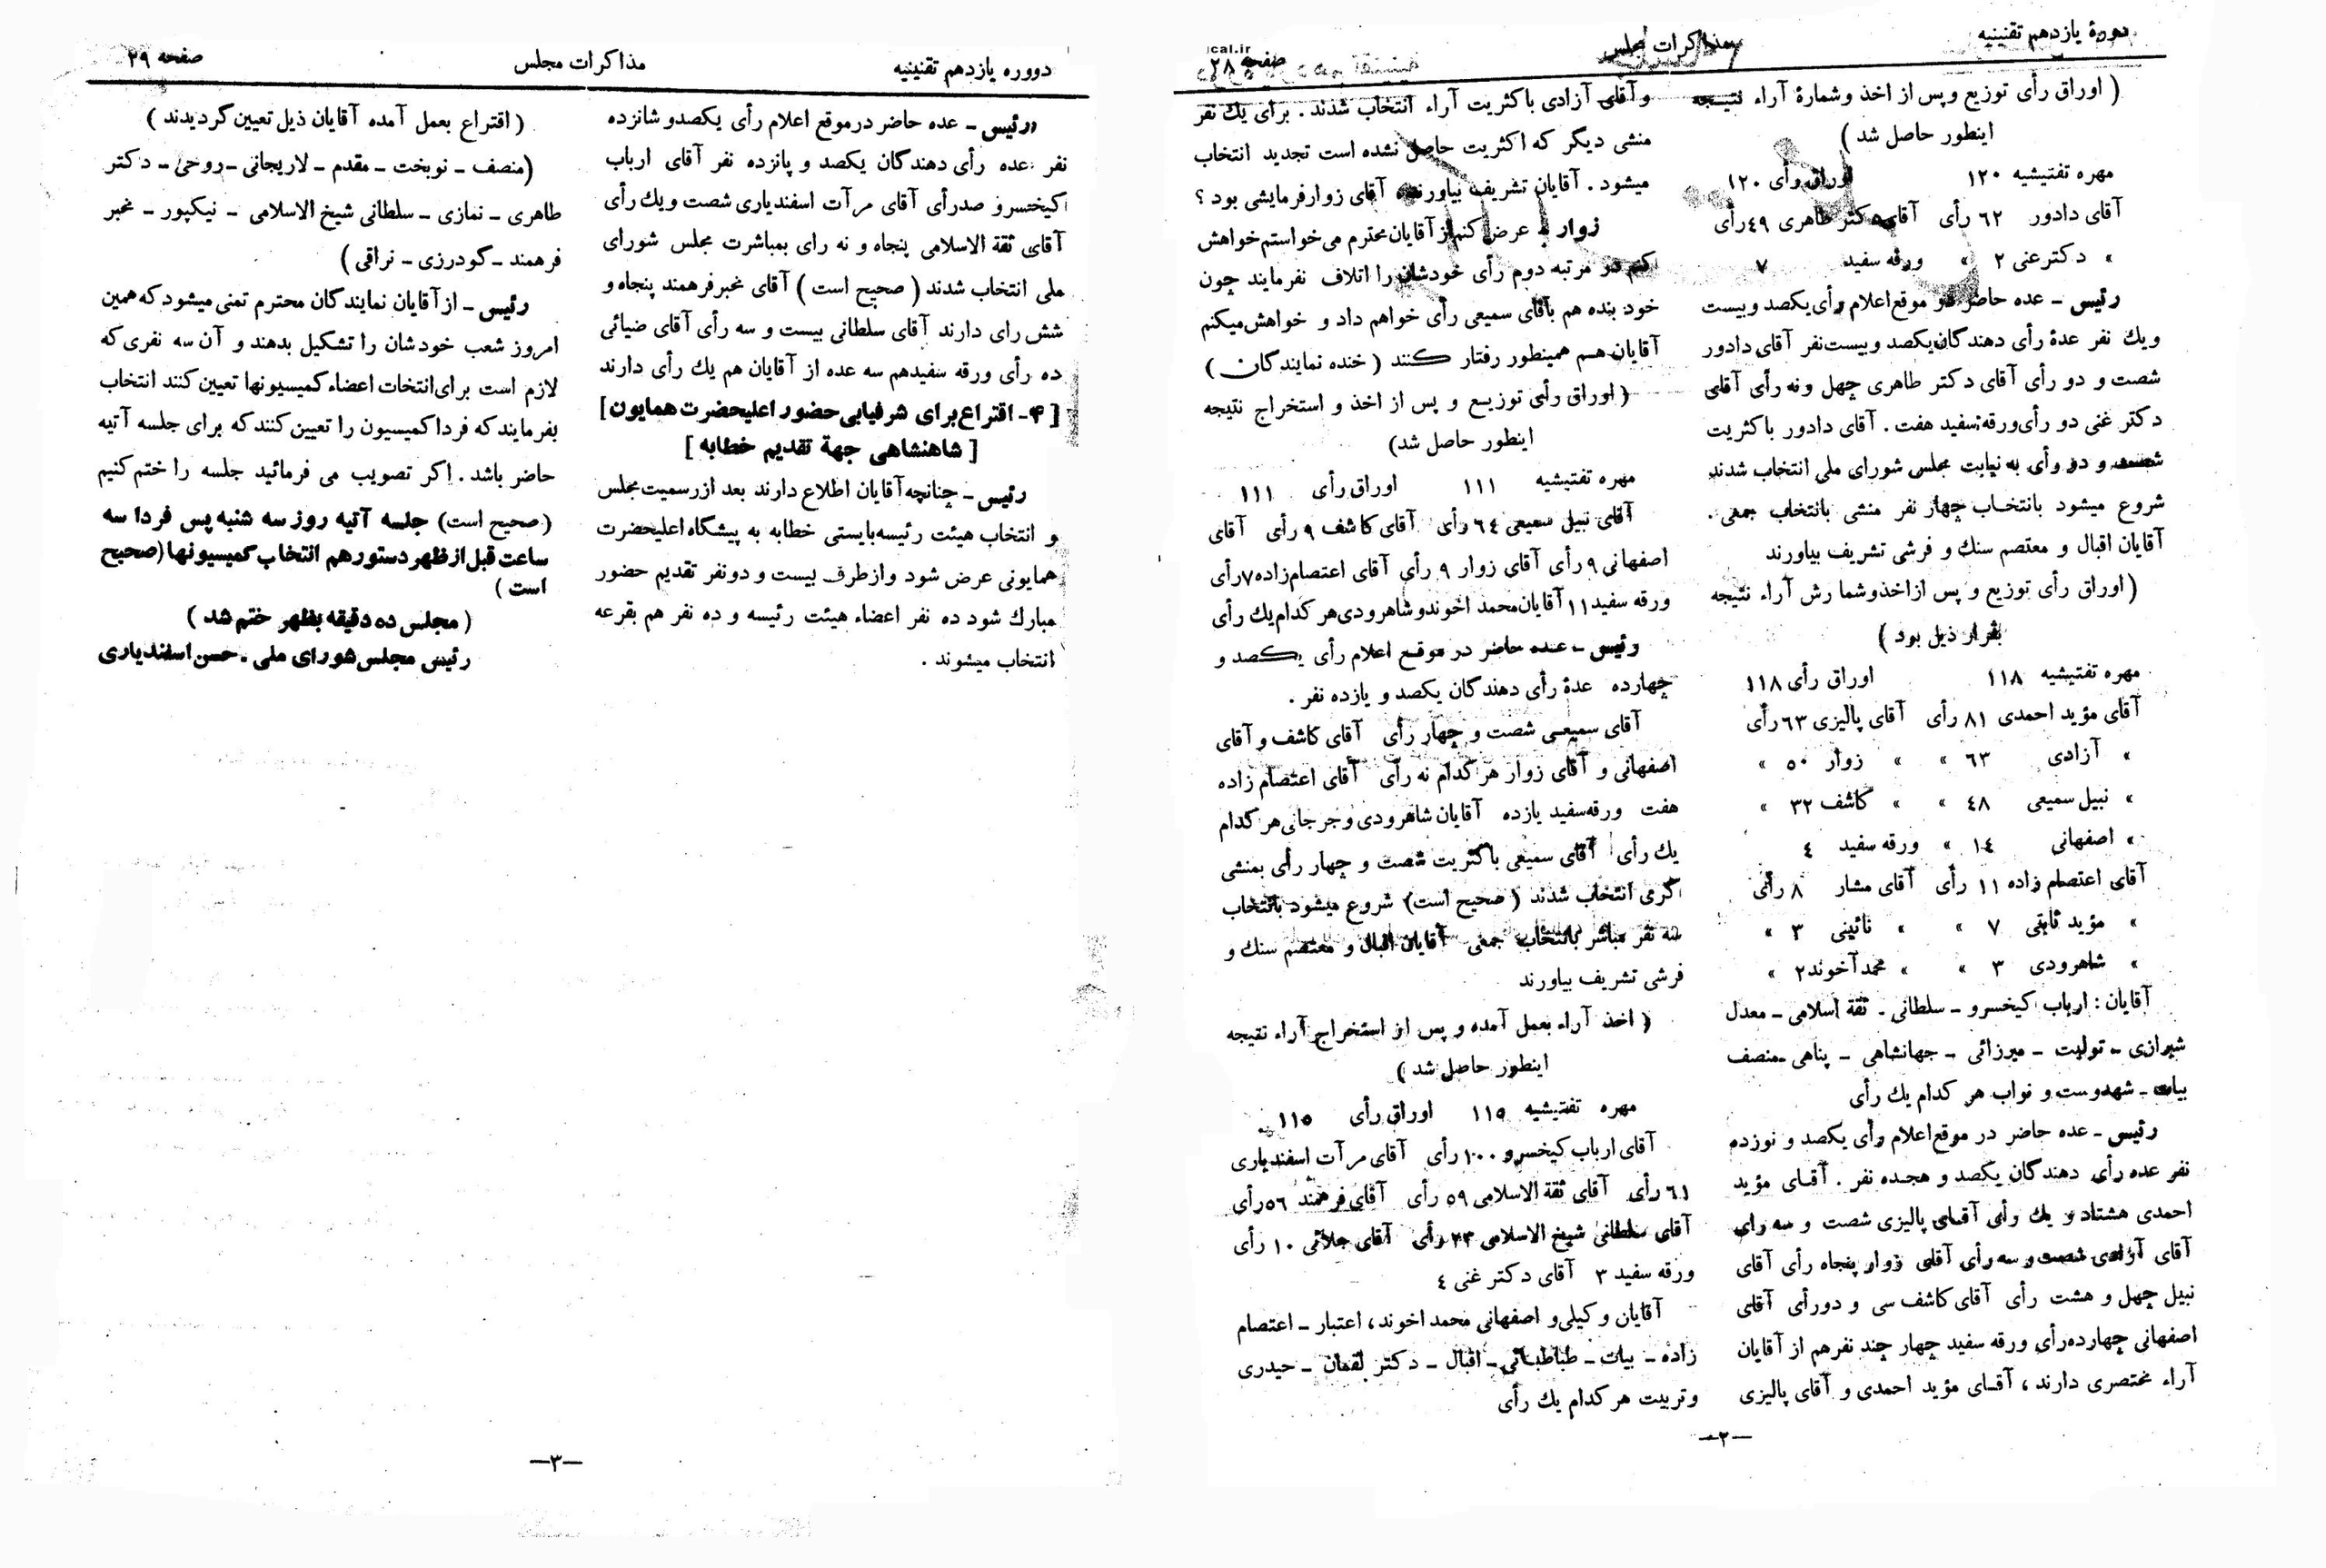 دورهٔ یازدهم تقنینیه
مذاکرات مجلس
صفحه ۲۸
( اوراق رأی توزیع وپس از اخذ وشمارهٔ آراء نتیجه
اینطور حاصل شد )
مهره تفتیشیه ۱۲۰ اوراق رأی ۱۲۰
آقای دادور ٦۲ رأی آقای دکتر طاهری ٤۹ رأی
» دکترغنی ۲ » ورقه سفید ۷
رئیس ـ عده حاضر در موقع اعلام رأی یکصد وبیست
ویك نفر عدهٔ رأی دهندگان یکصد وبیست نفر آقای دادور
شصت و دو رأی آقای دکتر طاهری چهل ونه رأی آقای
دکتر غنی دو رأی ورقه سفید هفت . آقای دادور باکثریت
شصت و دو رأی به نیابت مجلس شورای ملی انتخاب شدند
شروع میشود بانتخاب چهار نفر منشی بانتخاب جمعی .
آقایان اقبال و معتصم سنك و فرشی تشریف بیاورند
( اوراق رأی توزیع و پس از اخذ وشما رش آراء نتیجه
بقرار ذیل بود )
مهره تفتیشیه ۱۱۸ اوراق رأی ۱۱۸
آقای مؤید احمدی ۸۱ رأی آقای پالیزی ٦۳ رأی
» آزادی ٦۳ » » زوار ۵۰ »
» نبیل سمیعی ٤۸ » » کاشف ۳۲ »
» اصفهانی ۱٤ » ورقه سفید ٤
آقای اعتصام زاده ۱۱ رأی آقای مشار ۸ رأی
» مؤید ثابتی ۷ » » نائینی ۳ »
» شاهرودی ۳ » » محمدآخوند ۲ »
آقایان : ارباب کیخسرو ـ سلطانی ـ ثقة اسلامی ـ معدل
شیرازی ـ تولیت ـ میرزائی ـ جهانشاهی ـ پناهی ـ منصف
بیات ـ شهدوست و نواب هر کدام یك رأی
رئیس ـ عده حاضر در موقع اعلام رأی یکصد و نوزده
نفر عده رأی دهندگان یکصد و هجده نفر . آقـای مؤید
احمدی هشتاد و یك رأی آقـای پالیزی شصت و سه رای
آقای آزادی شصت و سه رأی آقای زوار پنجاه رأی آقای
نبیل چهل و هشت رأی آقای کاشف سی و دو رأی آقای
اصفهانی چهارده رأی ورقه سفید چهار چند نفرهم از آقایان
آراء مختصری دارند ، آقـای مؤید احمدی و آقای پالیزی
وآقای آزادی باکثریت آراء انتخاب شدند . برای یك نفر
منشی دیگر که اکثریت حاصل نشده است تجدید انتخاب
میشود . آقایان تشریف بیاورند آقای زوار فرمایشی بود ؟
زوار ـ عرض کنم از آقایان محترم می خواستم خواهش
کنم در مرتبه دوم رأی خودشان را اتلاف نفرمایند چون
خود بنده هم بآقای سمیعی رأی خواهم داد و خواهش میکنم
آقایان هـم همینطور رفتار کـنند ( خنده نمایندگان )
( اوراق رأی توزیـع و پس از اخذ و استخراج نتیجه
اینطور حاصل شد)
مهره تفتیشیه ۱۱۱ اوراق رأی ۱۱۱
آقای نبیل سمیعی ٦٤ رأی آقای کاشف ۹ رأی آقای
اصفهانی ۹ رأی آقای زوار ۹ رأی آقای اعتصام زاده ۷ رأی
ورقه سفید ۱۱ آقایان محمد اخوند و شاهرودی هر کدام یك رأی
رئیس ـ عـده حاضر در موقـع اعلام رأی یـکصد و
چهارده عدهٔ رأی دهندگان یکصد و یازده نفر .
آقای سمیعـی شصت و چهار رأی آقای کاشف و آقای
اصفهانی و آقای زوار هر کدام نه رأی آقای اعتصام زاده
هفت ورقه سفید یازده آقایان شاهرودی و جرجانی هر کدام
یك رأی آقای سمیعی باکثریت شصت و چهار رأی بمنشی
گری انتخاب شدند ( صحیح است) شروع میشود بانتخاب
سه نفر مباشر بانتخاب جمعی آقایان اقبال و معتصم سنك و
فرشی تشریف بیاورند
( اخذ آراء بعمل آمده و پس از استخراج آراء نتیجه
اینطور حاصل شد )
مهره تفتیشیه ۱۱۵ اوراق رأی ۱۱۵
آقای ارباب کیخسرو ۱۰۰ رأی آقای مرآت اسفندیاری
٦۱ رأی آقای ثقة الاسلامی ۵۹ رأی آقای فرهمند ۵٦ رأی
آقای سلطانی شیخ الاسلامی ۲۳ رأی آقای جلائی ۱۰ رأی
ورقه سفید ۳ آقای دکتر غنی ٤
آقایان وکیلی و اصفهانی محمد اخوند ، اعتبار ـ اعتصام
زاده ـ بیات ـ طباطبائی ـ اقبال ـ دکتر لقمان ـ حیدری
وتربیت هر کدام یك رأی
—۲—
دووره یازدهم تقنینیه
مذاکرات مجلس
صفحه ۲۹
رئیس ـ عده حاضر درموقع اعلام رأی یکصدو شانزده
نفر عده رأی دهندگان یکصد و پانزده نفر آقای ارباب
کیخسرو صدرأی آقای مرآت اسفندیاری شصت ویك رأی
آقای ثقة الاسلامی پنجاه و نه رای بمباشرت مجلس شورای
ملی انتخاب شدند ( صحیح است ) آقای مخبرفرهمند پنجاه و
شش رای دارند آقای سلطانی بیست و سه رأی آقای ضیائی
ده رأی ورقه سفیدهم سه عده از آقایان هم یك رأی دارند
[ ۴- اقتراع برای شرفیابی حضور اعلیحضرت همایون ]
[ شاهنشاهی جهة تقدیم خطابه ]
رئیس ـ چنانچه آقایان اطلاع دارند بعد ازرسمیت مجلس
و انتخاب هیئت رئیسه بایستی خطابه به پیشگاه اعلیحضرت
همایونی عرض شود وازطرف بیست و دونفر تقدیم حضور
مبارك شود ده نفر اعضاء هیئت رئیسه و ده نفر هم بقرعه
انتخاب میشوند .
( اقتراع بعمل آمده آقایان ذیل تعیین گردیدند )
(منصف ـ نوبخت ـ مقدم ـ لاریجانی ـ روحی ـ دکتر
طاهری ـ نمازی ـ سلطانی شیخ الاسلامی ـ نیکپور ـ مخبر
فرهمند ـ گودرزی ـ نراقی )
رئیس ـ از آقایان نمایندگان محترم تمنی میشود که همین
امروز شعب خودشان را تشکیل بدهند و آن سه نفری که
لازم است برای انتخاب اعضاء کمیسیونها تعیین کنند انتخاب
بفرمایند که فردا کمیسیون را تعیین کنند که برای جلسه آتیه
حاضر باشد . اگر تصویب می فرمائید جلسه را ختم کنیم
(صحیح است) جلسه آتیه روز سه شنبه پس فردا سه
ساعت قبل از ظهر دستورهم انتخاب کمیسیونها (صحیح
است )
( مجلس ده دقیقه بظهر ختم شد )
رئیس مجلس شورای ملی . حسن اسفندیاری
—۳—